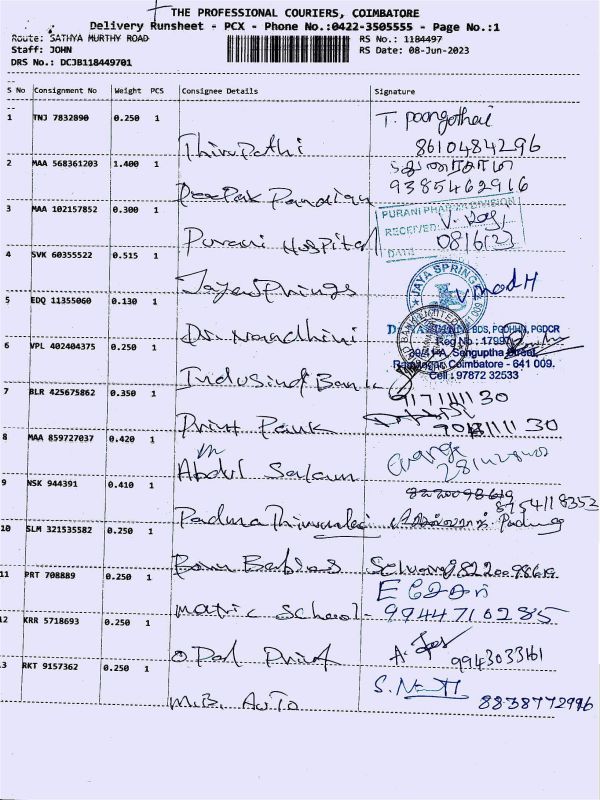 THE PROFESSIONAL COURIERS, COIMBATORE
Delivery Runsheet - PCX - Phone No.:0422-3505555 - Page No.:1
Route: SATHYA MURTHY ROAD RS No.: 1184497
Staff: JOHN RS Date: 08-Jun-2023
DRS No.: DCJB118449701
S No Consignment No Weight PCS Consignee Details Signature
1 TNJ 7832890 0.250 1 T. poongothai
Thirupathi 8610484296
2 MAA 568361203 1.400 1
Deepak Pandian 9385462916
3 MAA 102157852 0.300 1 PURANI PHARMA DIVISION
RECEIVED: V. Raj
Purani Hospital DATE
4 SVK 60355522 0.515 1 JAYA SPRINGS
Jaya Springs
5 EDQ 11355060 0.130 1 BDS, PGDHHM, PGDCR
Dr. Nandhini Reg No : 17997
6 VPL 402404375 0.250 1 39/41A, Senguptha Street,
Ramnagar, Coimbatore - 641 009.
Cell : 97872 32533
Indusind Bank
7 BLR 425675862 0.350 1 9171111130
Print Park
8 MAA 859727037 0.420 1
Abdul Salam
9 NSK 944391 0.410 1 8220098619
8754118352
Padma
10 SLM 321535582 0.250 1
Born Babies 8220098619
11 PRT 708889 0.250 1
Matric School - 9944710285
12 KRR 5718693 0.250 1
Opal Print 9943033161
13 RKT 9157362 0.250 1
M.B. AuTo 8838772996